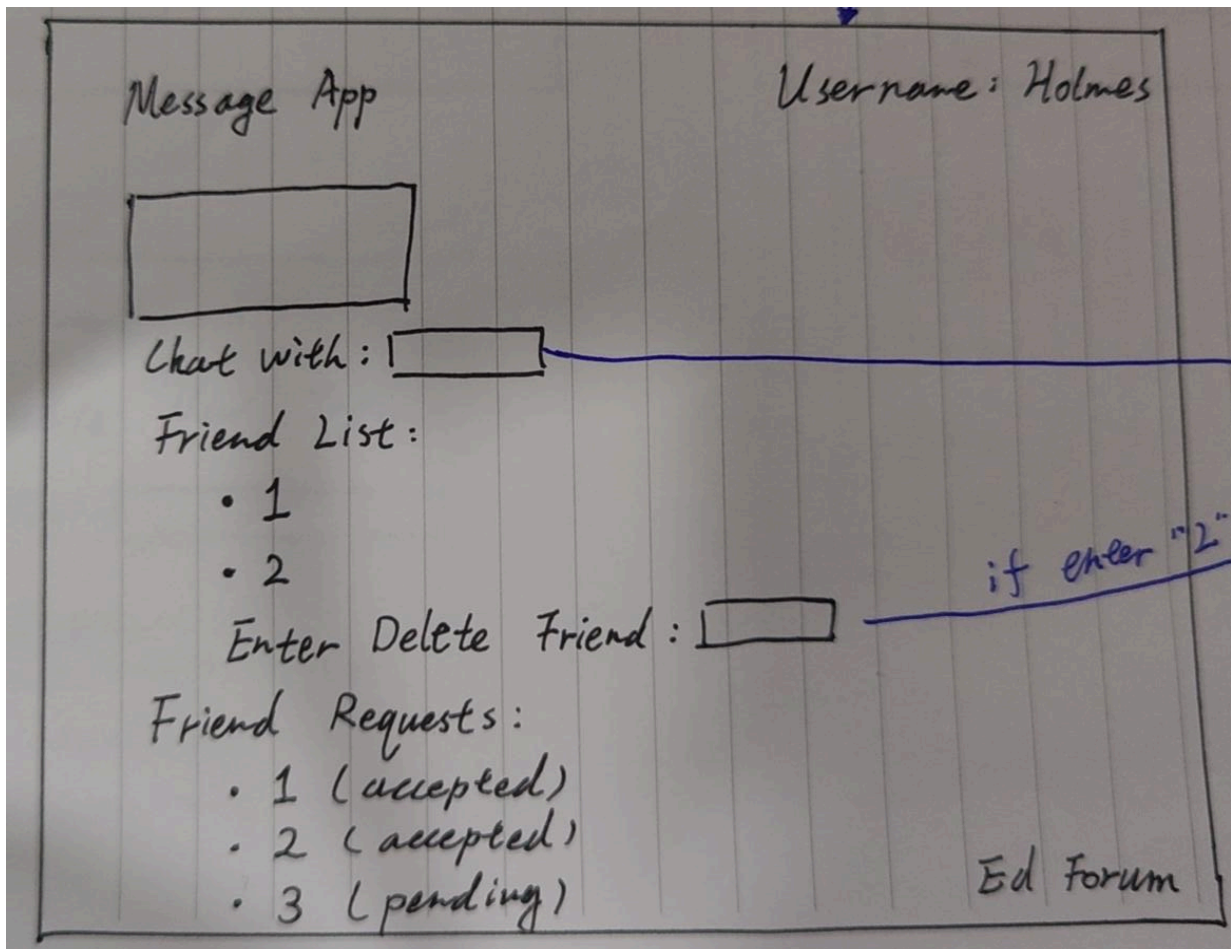 Message App
Username: Holmes
Chat with:
Friend List:
• 1
• 2
if enter "2"
Enter Delete Friend:
Friend Requests:
• 1 (accepted)
• 2 (accepted)
• 3 (pending)
Ed Forum